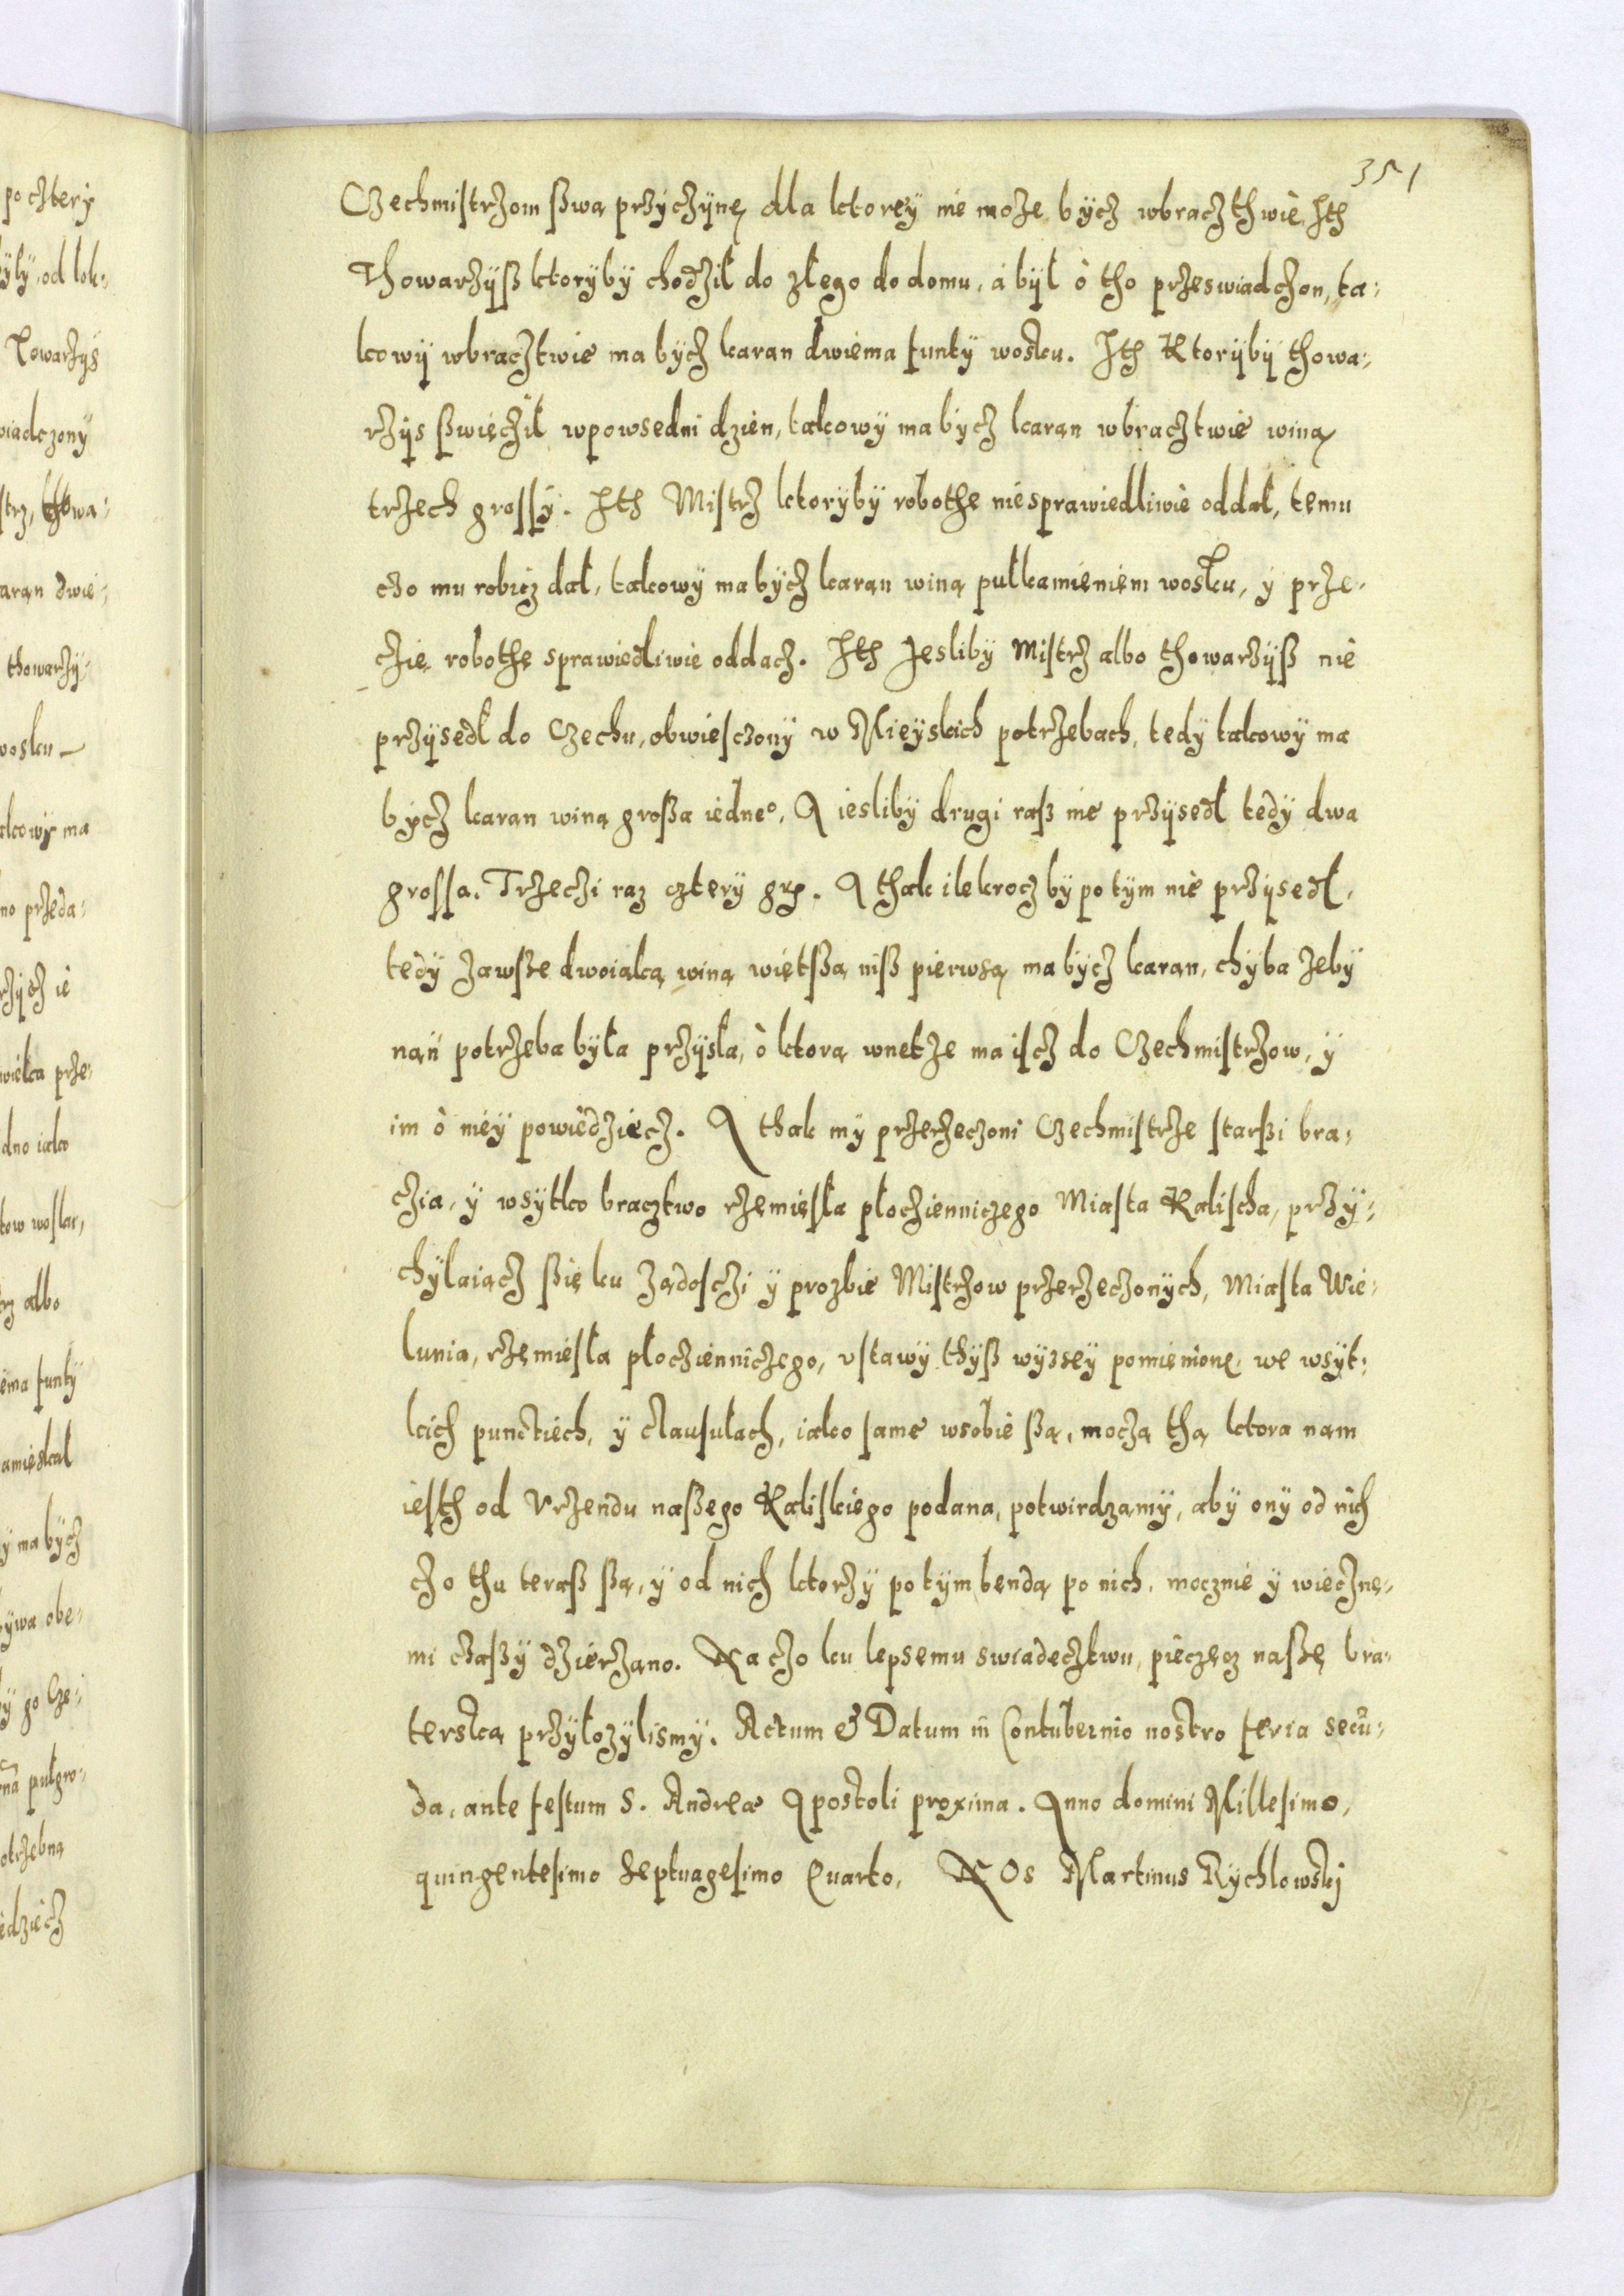 351
Czechmistrzom sßwą przyczÿnę dla ktoreÿ nie może bÿcz wbracztwie Jth
Thowarzÿß ktorÿbÿ chodził do złego do domu, a bÿł ò tho przeswiadczon, ta=
kowÿ wbracztwie ma bÿcz karan dwiema funtÿ wosku. Jth Ktorÿbÿ thowa=
rzÿs ßwięcził wpowsedni dzien, takowÿ ma bÿcz karan wbracztwie winą
trzech grossÿ. Jth Mistrz ktorÿbÿ robothę niesprawiedliwie oddał, temu
czo mu robicz dał, takowÿ ma bÿcz karan winą pułkamieniem wosku, ÿ prze=
czię robothę sprawiedliwie oddacz. Jth Jesliby Mistrz albo thowarzÿß nie
przÿsedł do Czechu, obwiesczonÿ w Mieÿskich potrzebach, tedÿ takowÿ ma
bÿcz karan winą großa iedneo, A iesliby drugi raß nie przÿsedł tedÿ dwa
grossa. Trzeczi raz czterÿ grß. A thak ilekrocz bÿ potÿm nie przÿsedł,
tedÿ zawße dwoiaką winą więtßą niß pierwsą ma bÿcz karan, chÿba żebÿ
nań potrzeba bÿła przÿsła, ò ktorą wnetże ma iscz do Czechmistrzow, ÿ
im ò nieÿ powiedziecz. A thak mÿ przerzeczoni Czechmistrze starßi bra=
czia, ÿ wsÿtko bracztwo rzemięsła płoczienniczego Miasta Kalischa, przÿ=
chÿlaiącz ßię ku żądosczi ÿ prozbie Mistrzow przerzeczonÿch, Miasta Wie=
lunia, rzemięsła płoczienniczego, vstawÿ thÿß wÿzseÿ pomienionę we wsÿt=
kich punctiech, ÿ clausulach, iako same wsobie ßą, moczą thą ktora nam
iesth od Vrzendu naßego Kaliskiego podana, potwirdzamÿ, abÿ onÿ od nich
czo thu teraß ßą, ÿ od nich ktorzÿ potÿm bendą po nich, mocznie ÿ wiecznę=
mi czaßÿ dzierżano. Na czo ku lepsemu swiadecztwu, pieczęcz naßę bra=
terską przÿłożÿlismÿ. Actum & Datum in Contubernio nostro feria secū=
da, ante festum S. Andreæ Apostoli proxima. Anno domini Millesimo,
quingentesimo Septuagesimo Quarto, NOs Martinus Rÿchlowskj
po czterÿ
Towarzÿs
wiadczonÿ
strz, thowa=
aran dwie=
thowarzÿ=
wosku
akowÿ ma
no przeda=
dno iako
albo
ema funtÿ
amięskał
ÿ ma bÿcz
bÿwa obe=
otrzebną